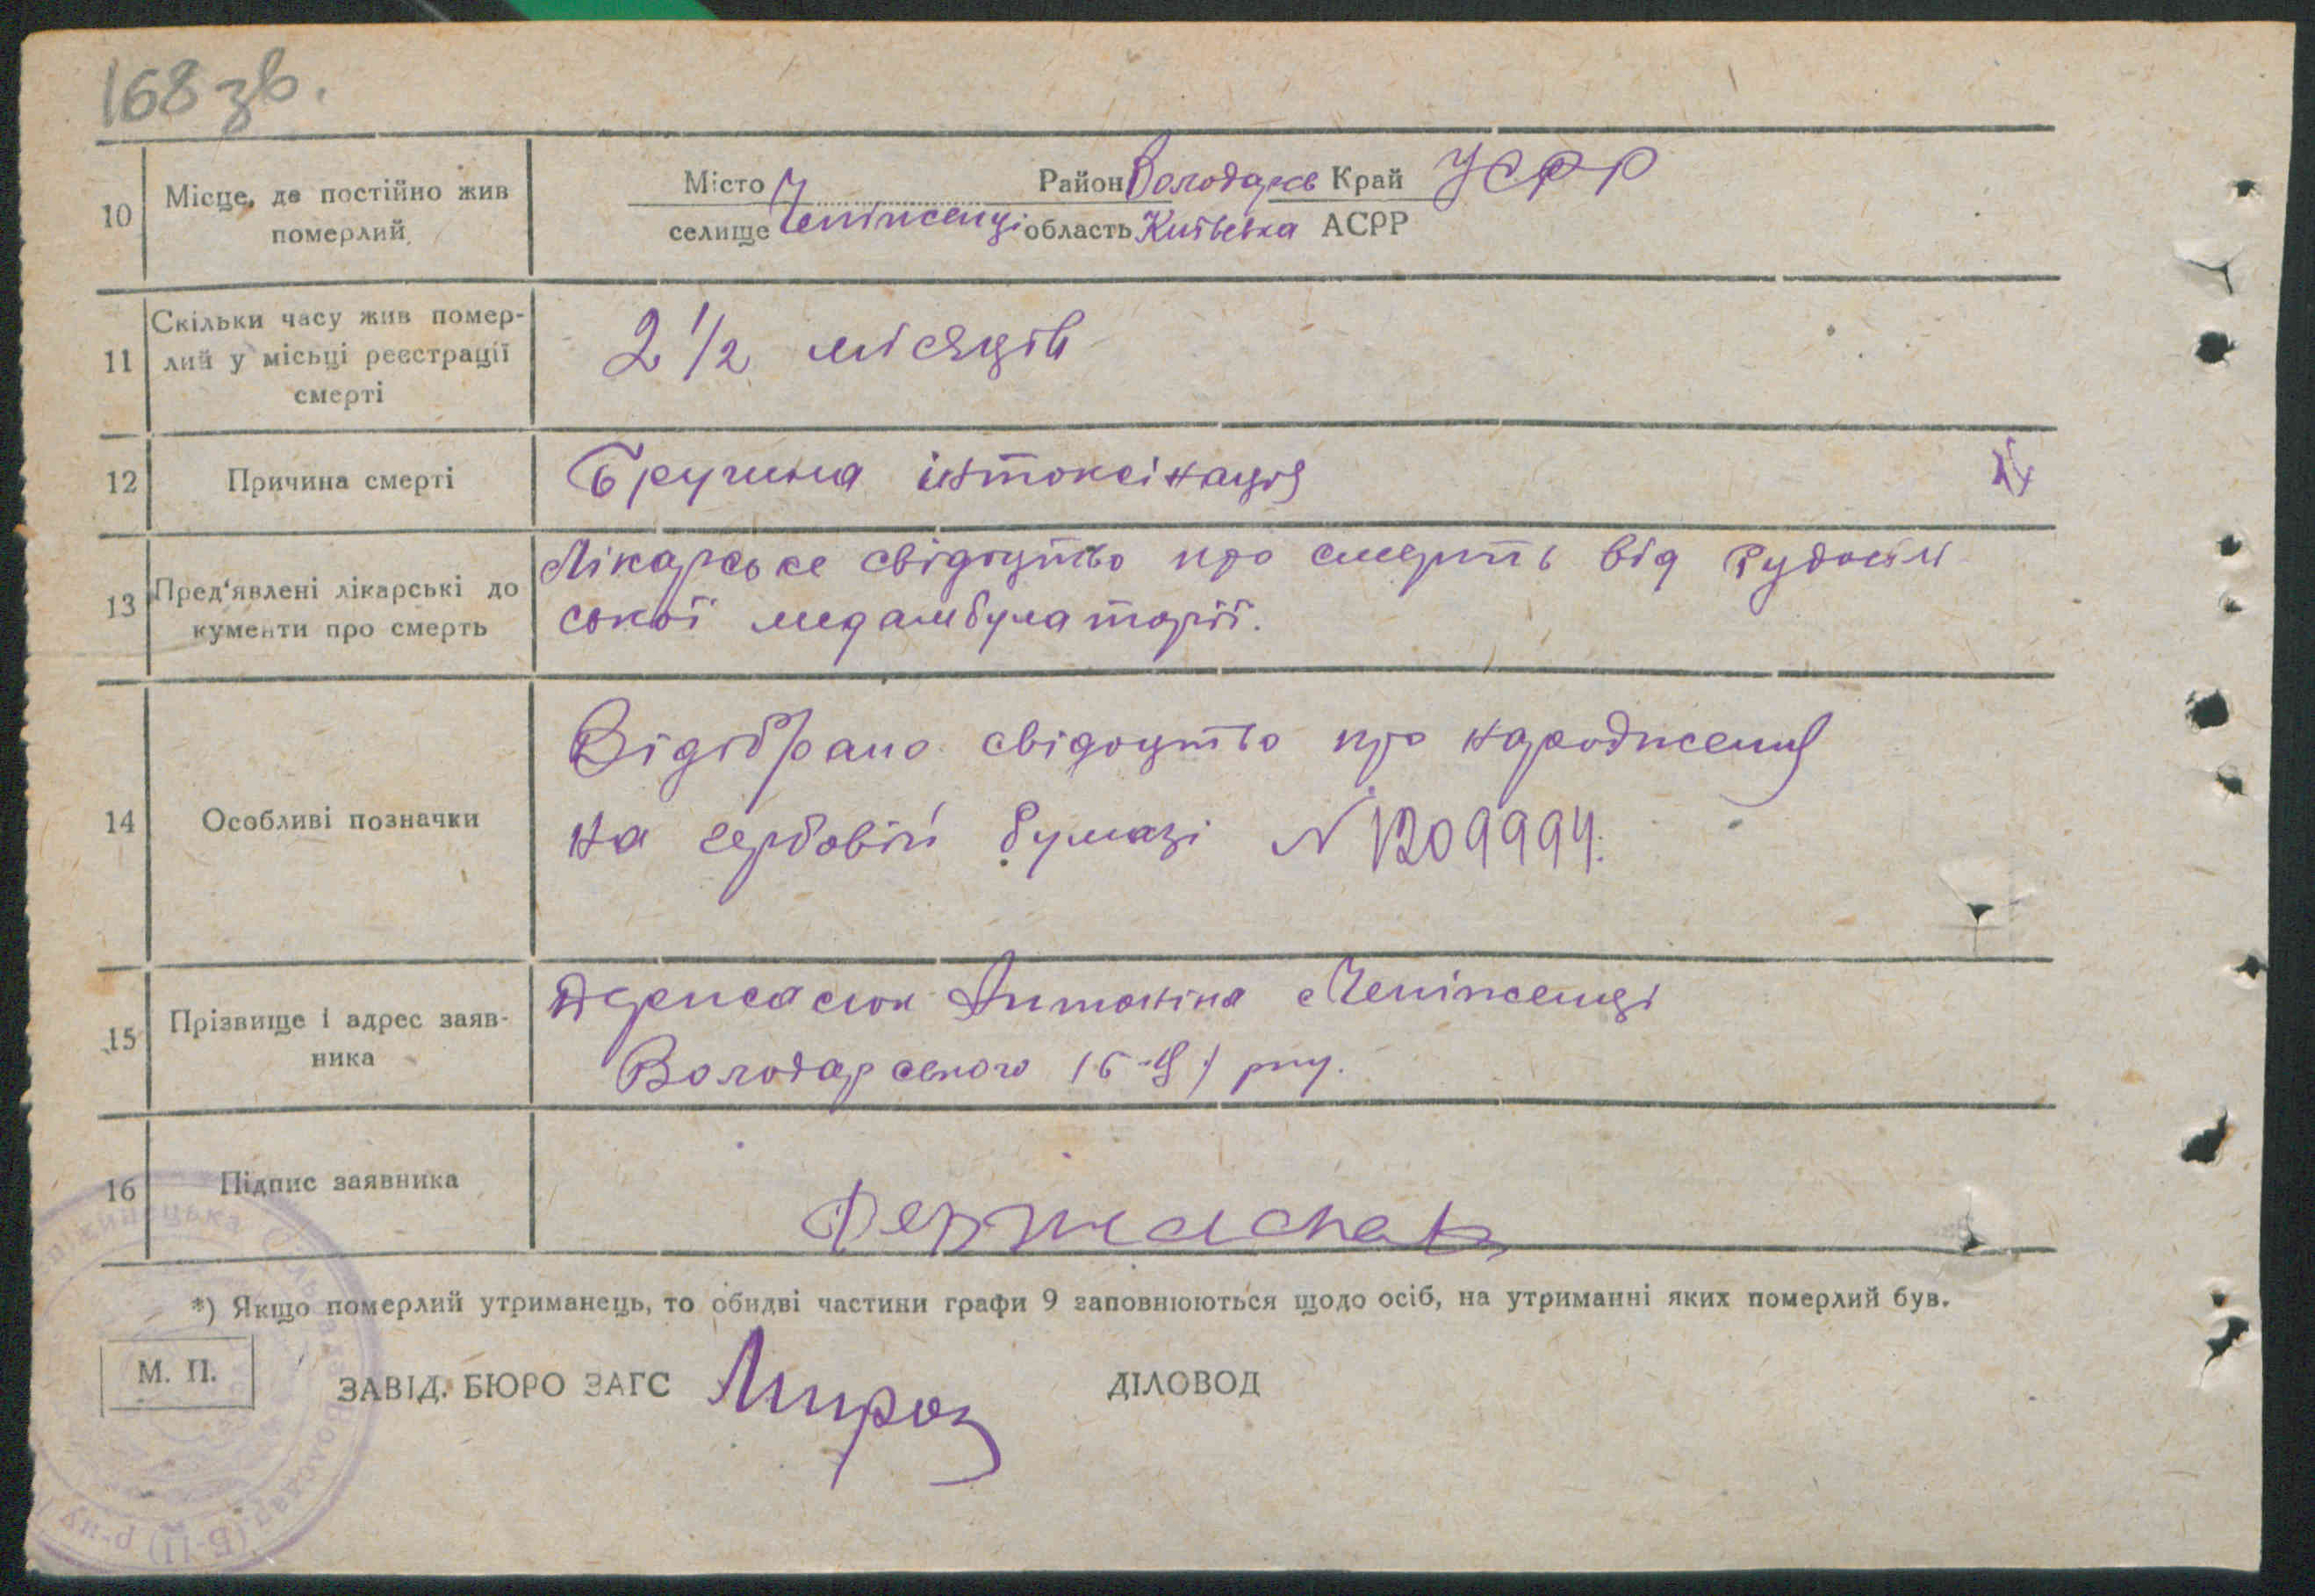 168 зв.
10 Місце, де постійно жив померлий
Місто Район Володарсь Край УСРР
селище Чепіженці область Київська АСРР
11 Скільки часу жив помер-
лий у місьці реєстрації
смерті
2 1/2 місяців
12 Причина смерті
інтоксікація
13 Пред'явлені лікарські до
кументи про смерть
Лікарське свідоцтво про смерть від Рудосіл
ської медамбулаторії.
14 Особливі позначки
Відібрано свідоцтво про народження
на гербовій бумазі N 1209994.
15 Прізвище і адрес заяв-
ника
Антоніна с Чепіженці
Володарського (Б-Ц) р-ну.
16 Підпис заявника
*) Якщо померлий утриманець, то обидві частини графи 9 заповнюються щодо осіб, на утриманні яких померлий був.
М. П.
ЗАВІД. БЮРО ЗАГС ДІЛОВОД
(Б-Ц) р-ну